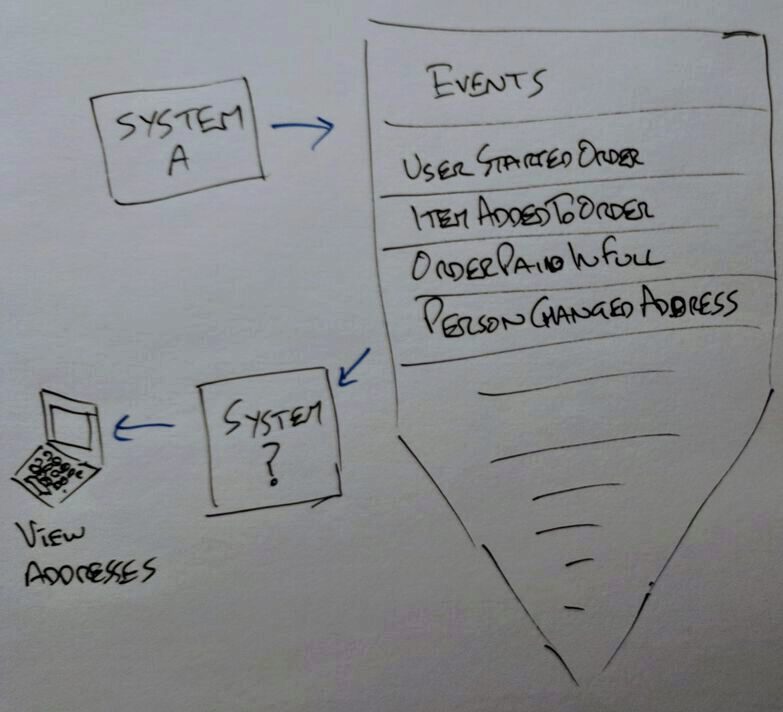 SYSTEM
A
EVENTS
USER STARTED ORDER
ITEM ADDED TO ORDER
ORDER PAID IN FULL
PERSON CHANGED ADDRESS
SYSTEM
?
VIEW
ADDRESSES